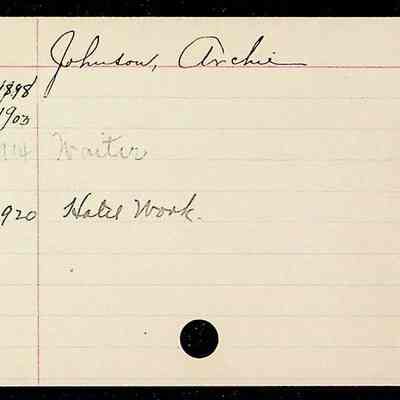 Johnson, Archie
1898
1903
1914 Waiter
1920 Hotel Work.